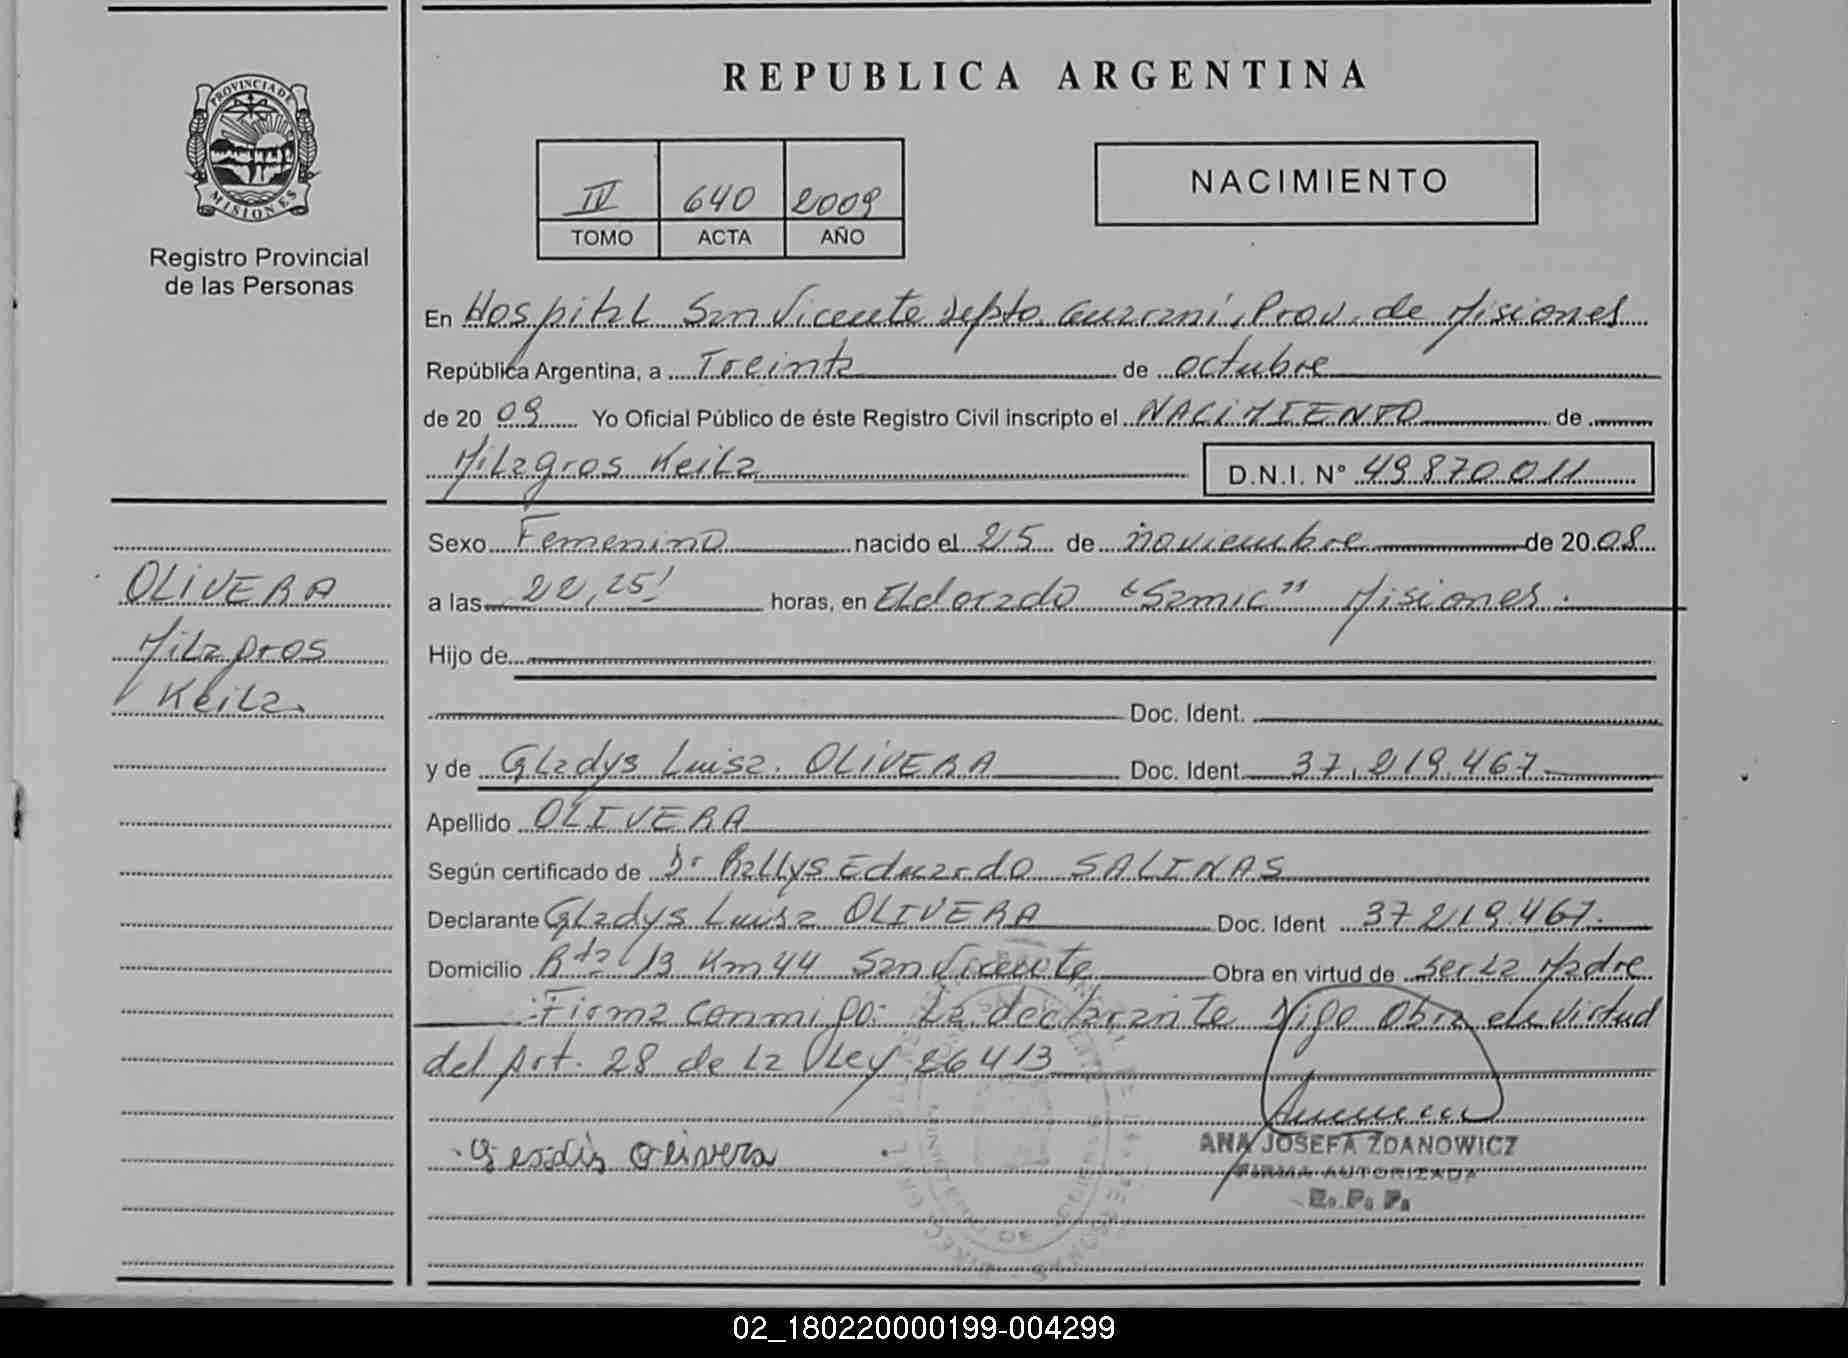 PROVINCIA DE
MISIONES
Registro Provincial
de las Personas
OLIVERA
Milagros
Keila
REPUBLICA ARGENTINA
IV 640 2009
TOMO ACTA AÑO
NACIMIENTO
En Hospital San Vicente depto. Guarani, Prov. de Misiones
República Argentina, a Treinta de octubre
de 20 09 Yo Oficial Público de éste Registro Civil inscripto el NACIMIENTO de
Milagros Keila D.N.I. N° 49870011
Sexo Femenino nacido el 25 de noviembre de 20 08
a las 22,25' horas, en Eldorado "Samic" Misiones.
Hijo de
Doc. Ident.
y de Gladys Luisa. OLIVERA Doc. Ident. 37.219.467
Apellido OLIVERA
Según certificado de Dr Rallys Eduardo SALINAS
Declarante Gladys Luisa OLIVERA Doc. Ident 37219.467.
Domicilio Rta 13 Km 44 San Vicente Obra en virtud de ser la Madre
Firma conmigo: La declarante Digo Obra en Virtud
del Art. 28 de la Ley 26413
olivera
ANA JOSEFA ZDANOWICZ
FIRMA AUTORIZADA
R. P. P.
02_180220000199-004299